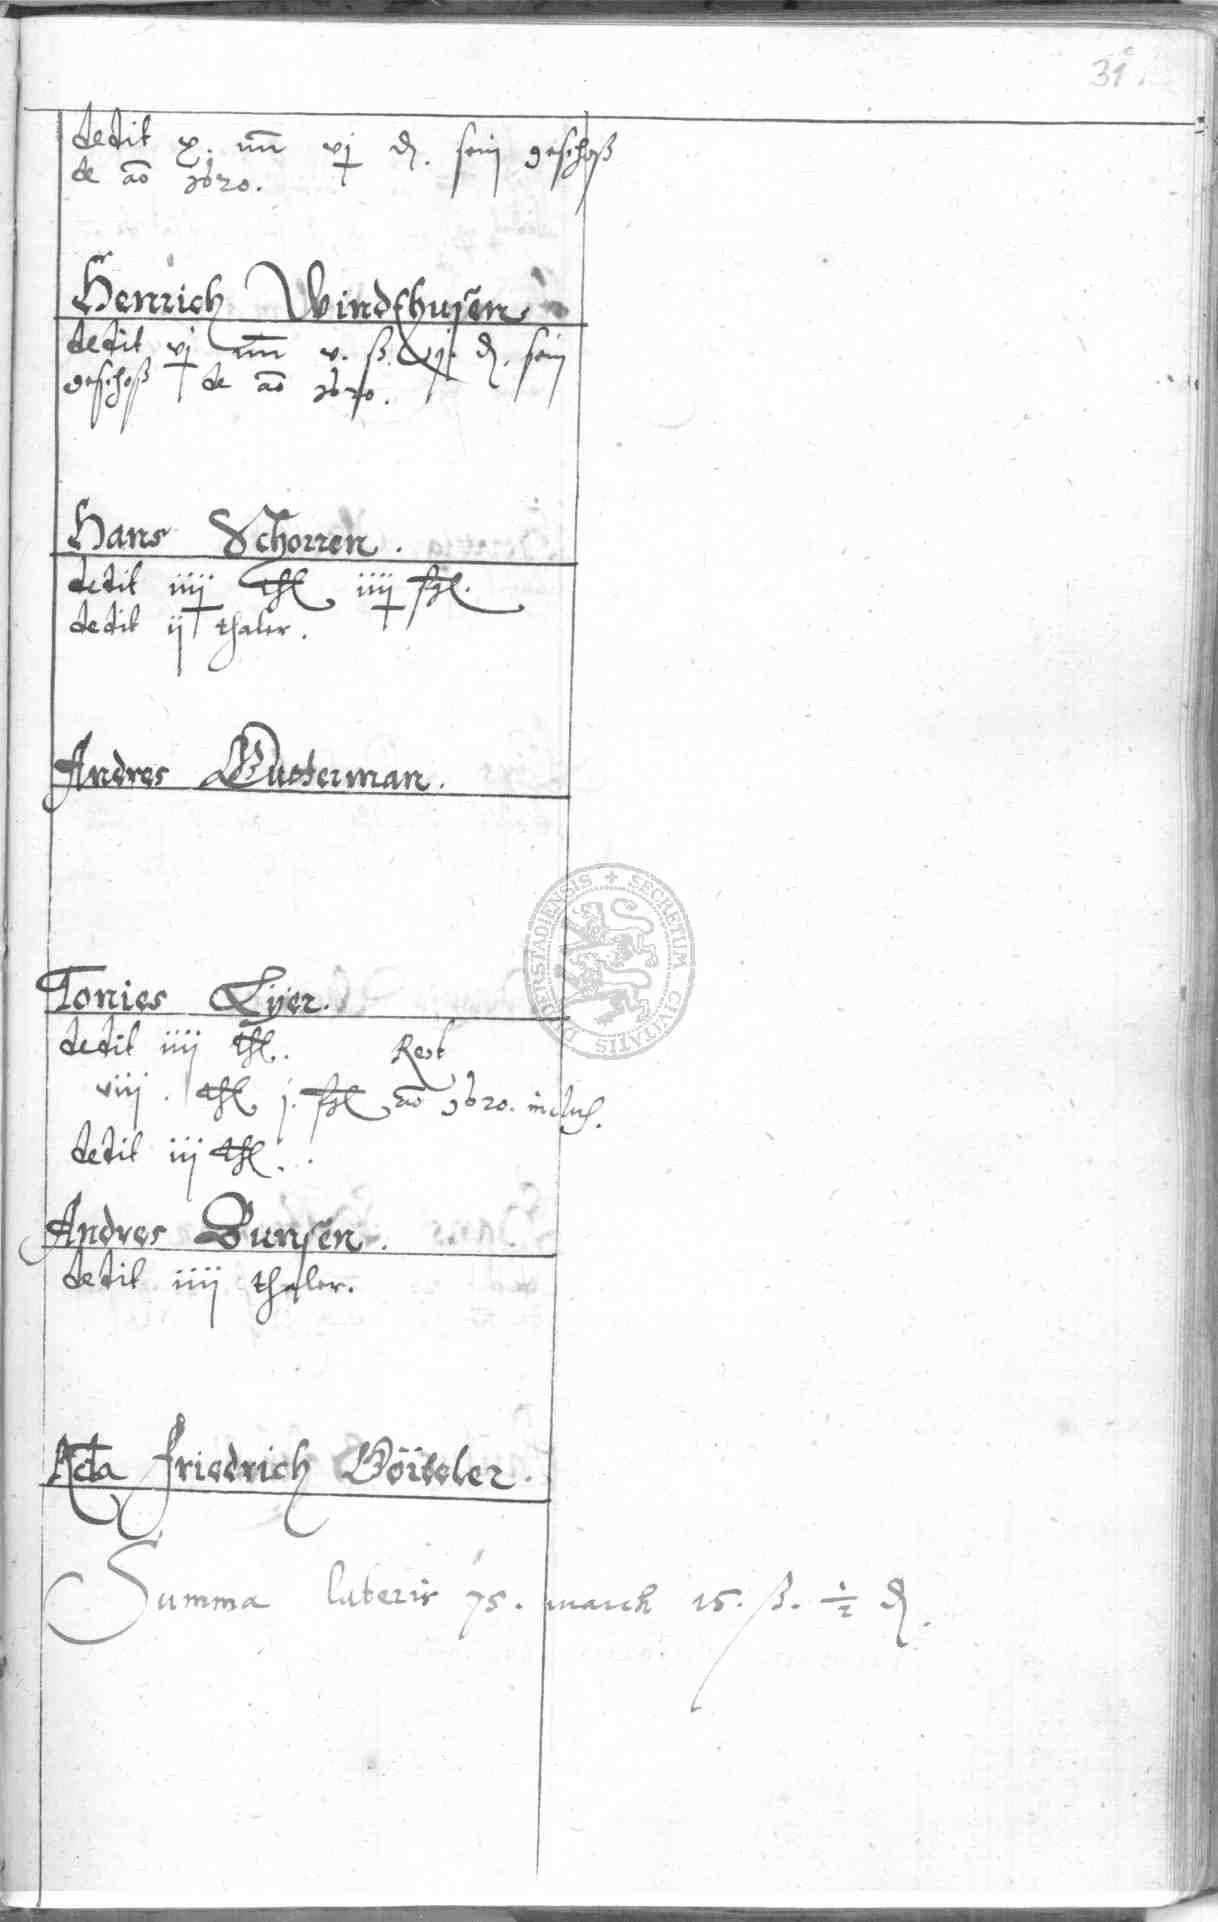 31
dedit x. m vj d. sein geschoß
de ao 1620.
Henrich Windthusen
dedit vj m v. ß. d. sein
geschoß de ao 1620.
Hans Schorren.
dedit iiij thl iiij fgl.
dedit ij thaler.
Andres Gutterman.
Tonies Eyer.
dedit iiij thl. Rest
viiij. thl j. fgl ao 1620. inclus.
dedit iij thl.
Andres Bunsen.
dedit iiij thaler.
Friedrich
Summa lateris 75. march 15. ß. ½ d.
SECRETUM CIVITATIS DUDERSTADIENSIS